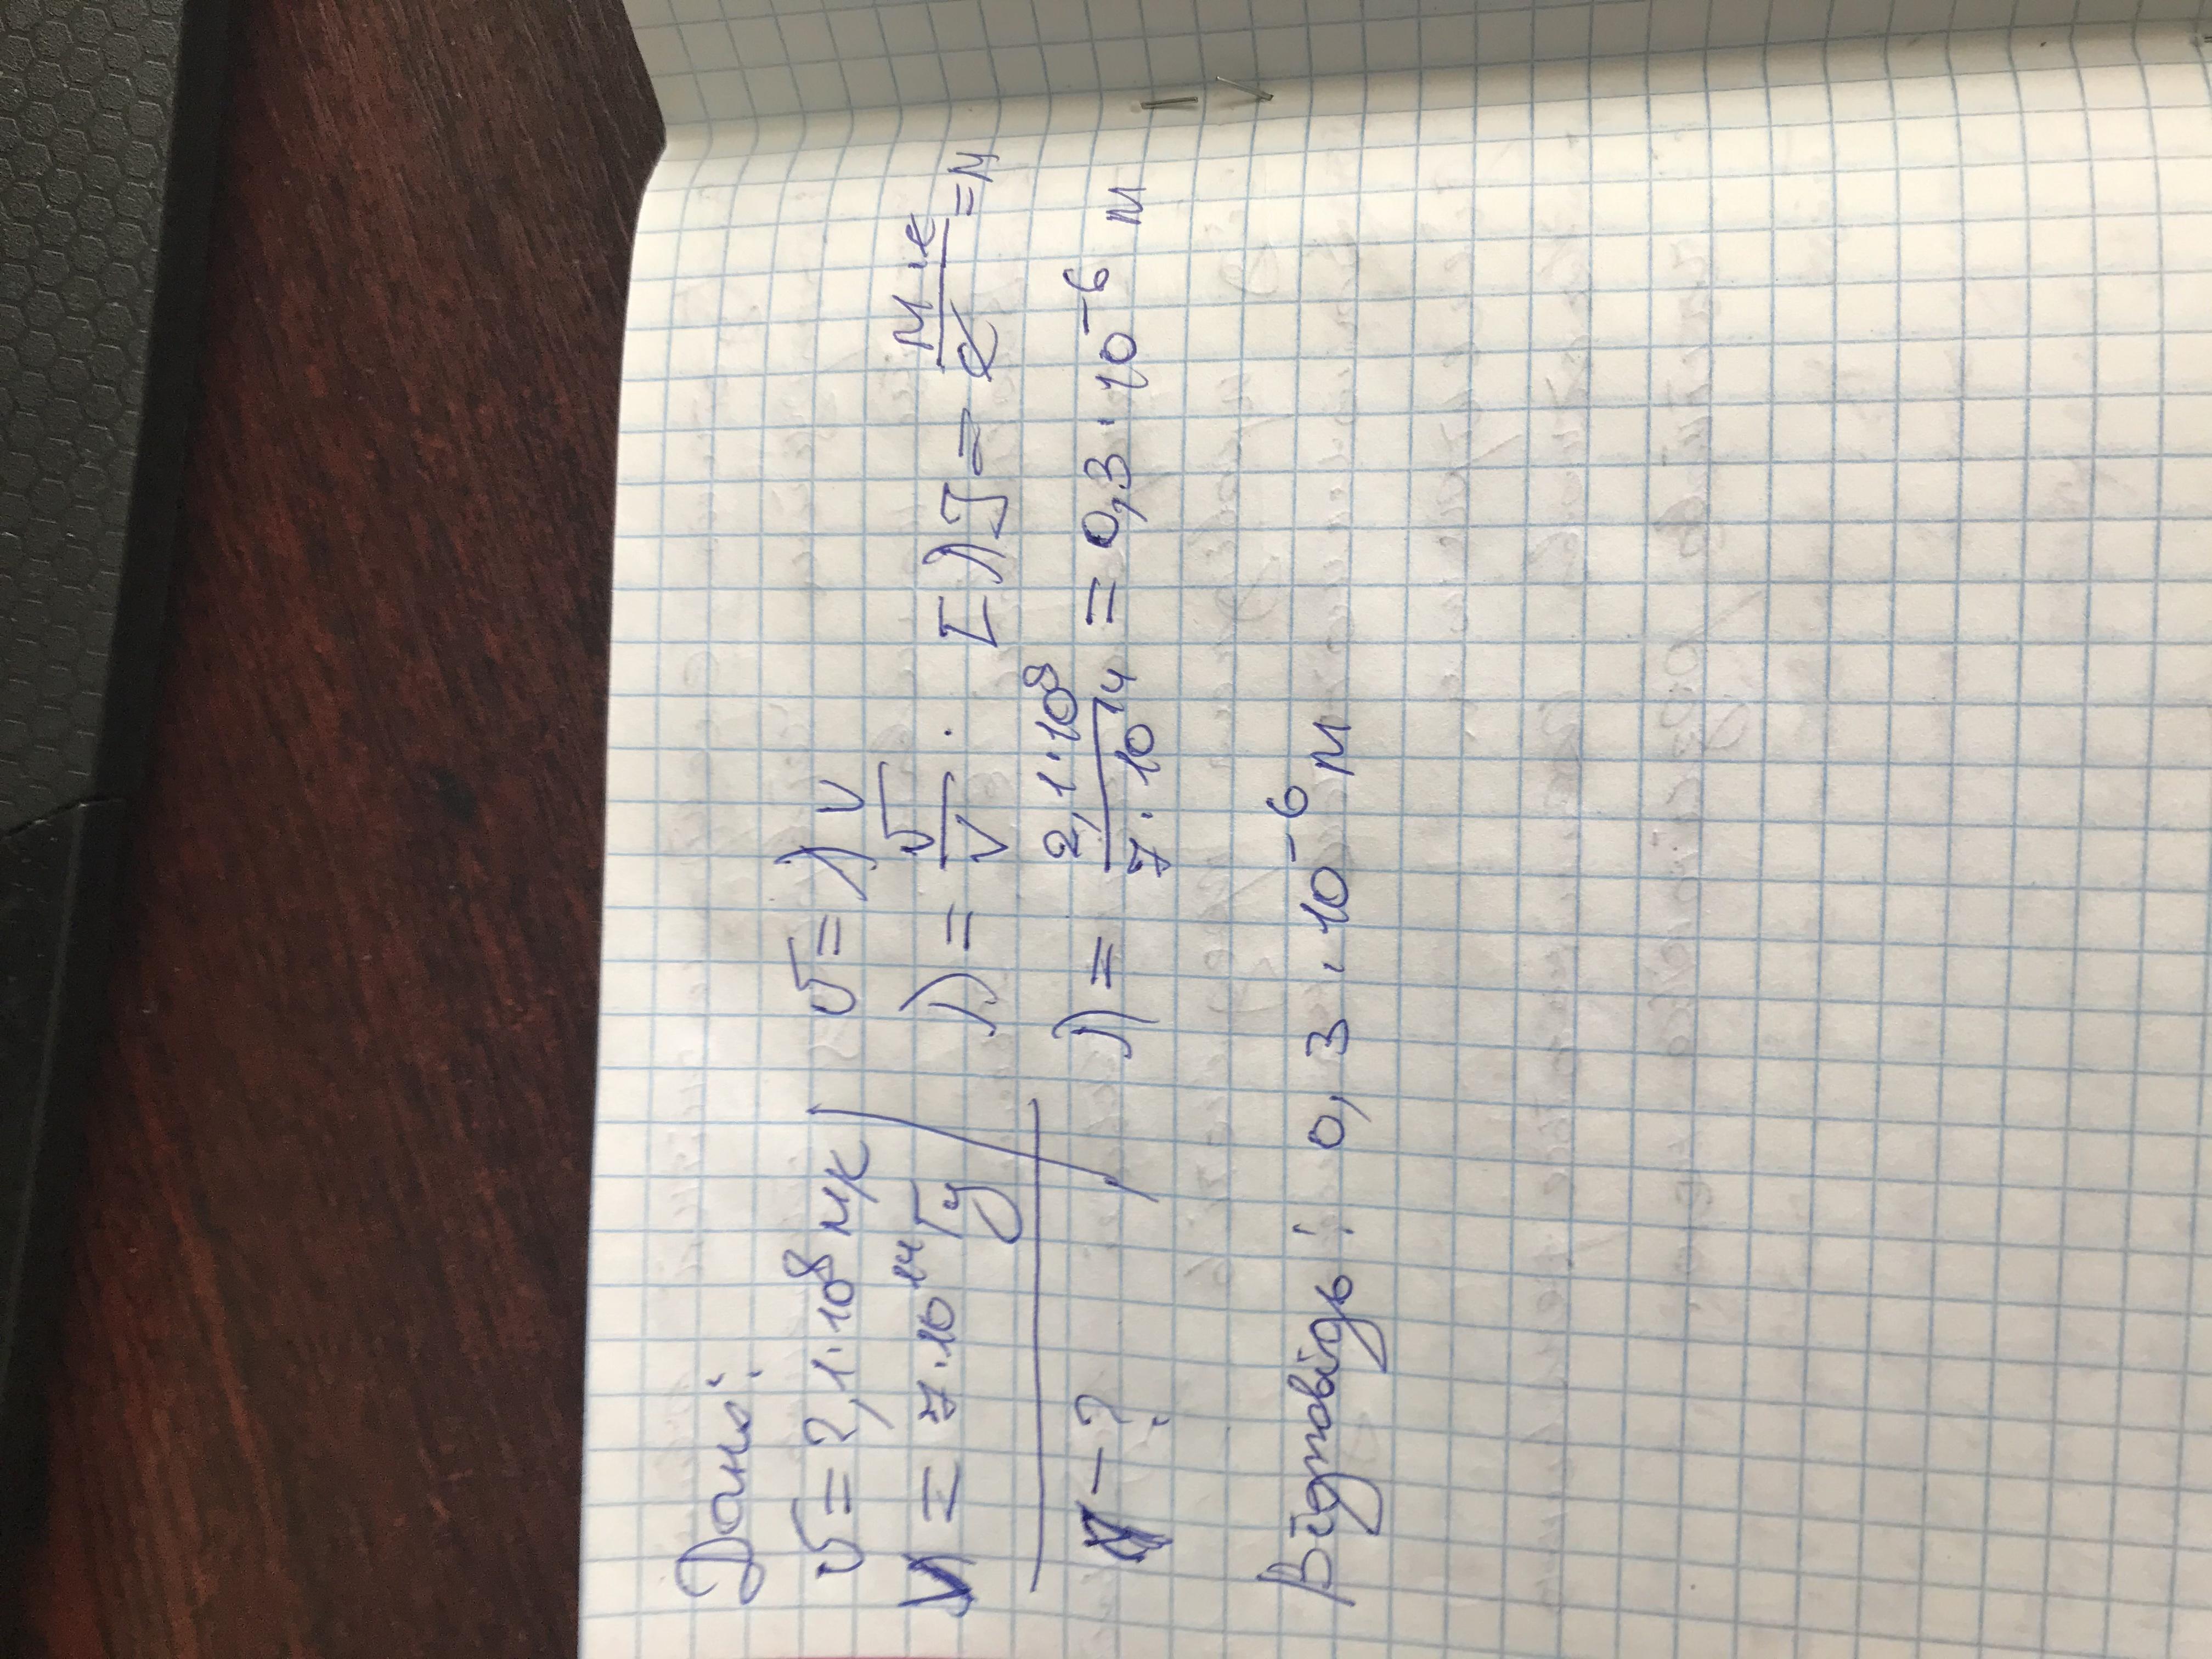 Дано:
υ = 2,1·10⁸ м/с
ν = 7·10¹⁴ Гц
λ - ?
υ = λ ν
λ = υ/ν . [λ] = м·с/с = м
λ = 2,1·10⁸/7·10¹⁴ = 0,3·10⁻⁶ м
Відповідь: 0,3·10⁻⁶ м